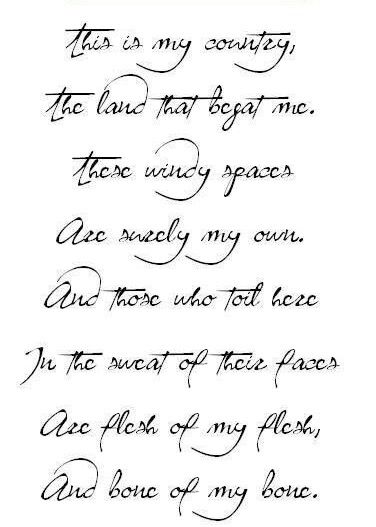 this is my country,
the land that begat me.
these windy spaces
Are surely my own.
And those who toil here
In the sweat of their faces
Are flesh of my flesh,
And bone of my bone.